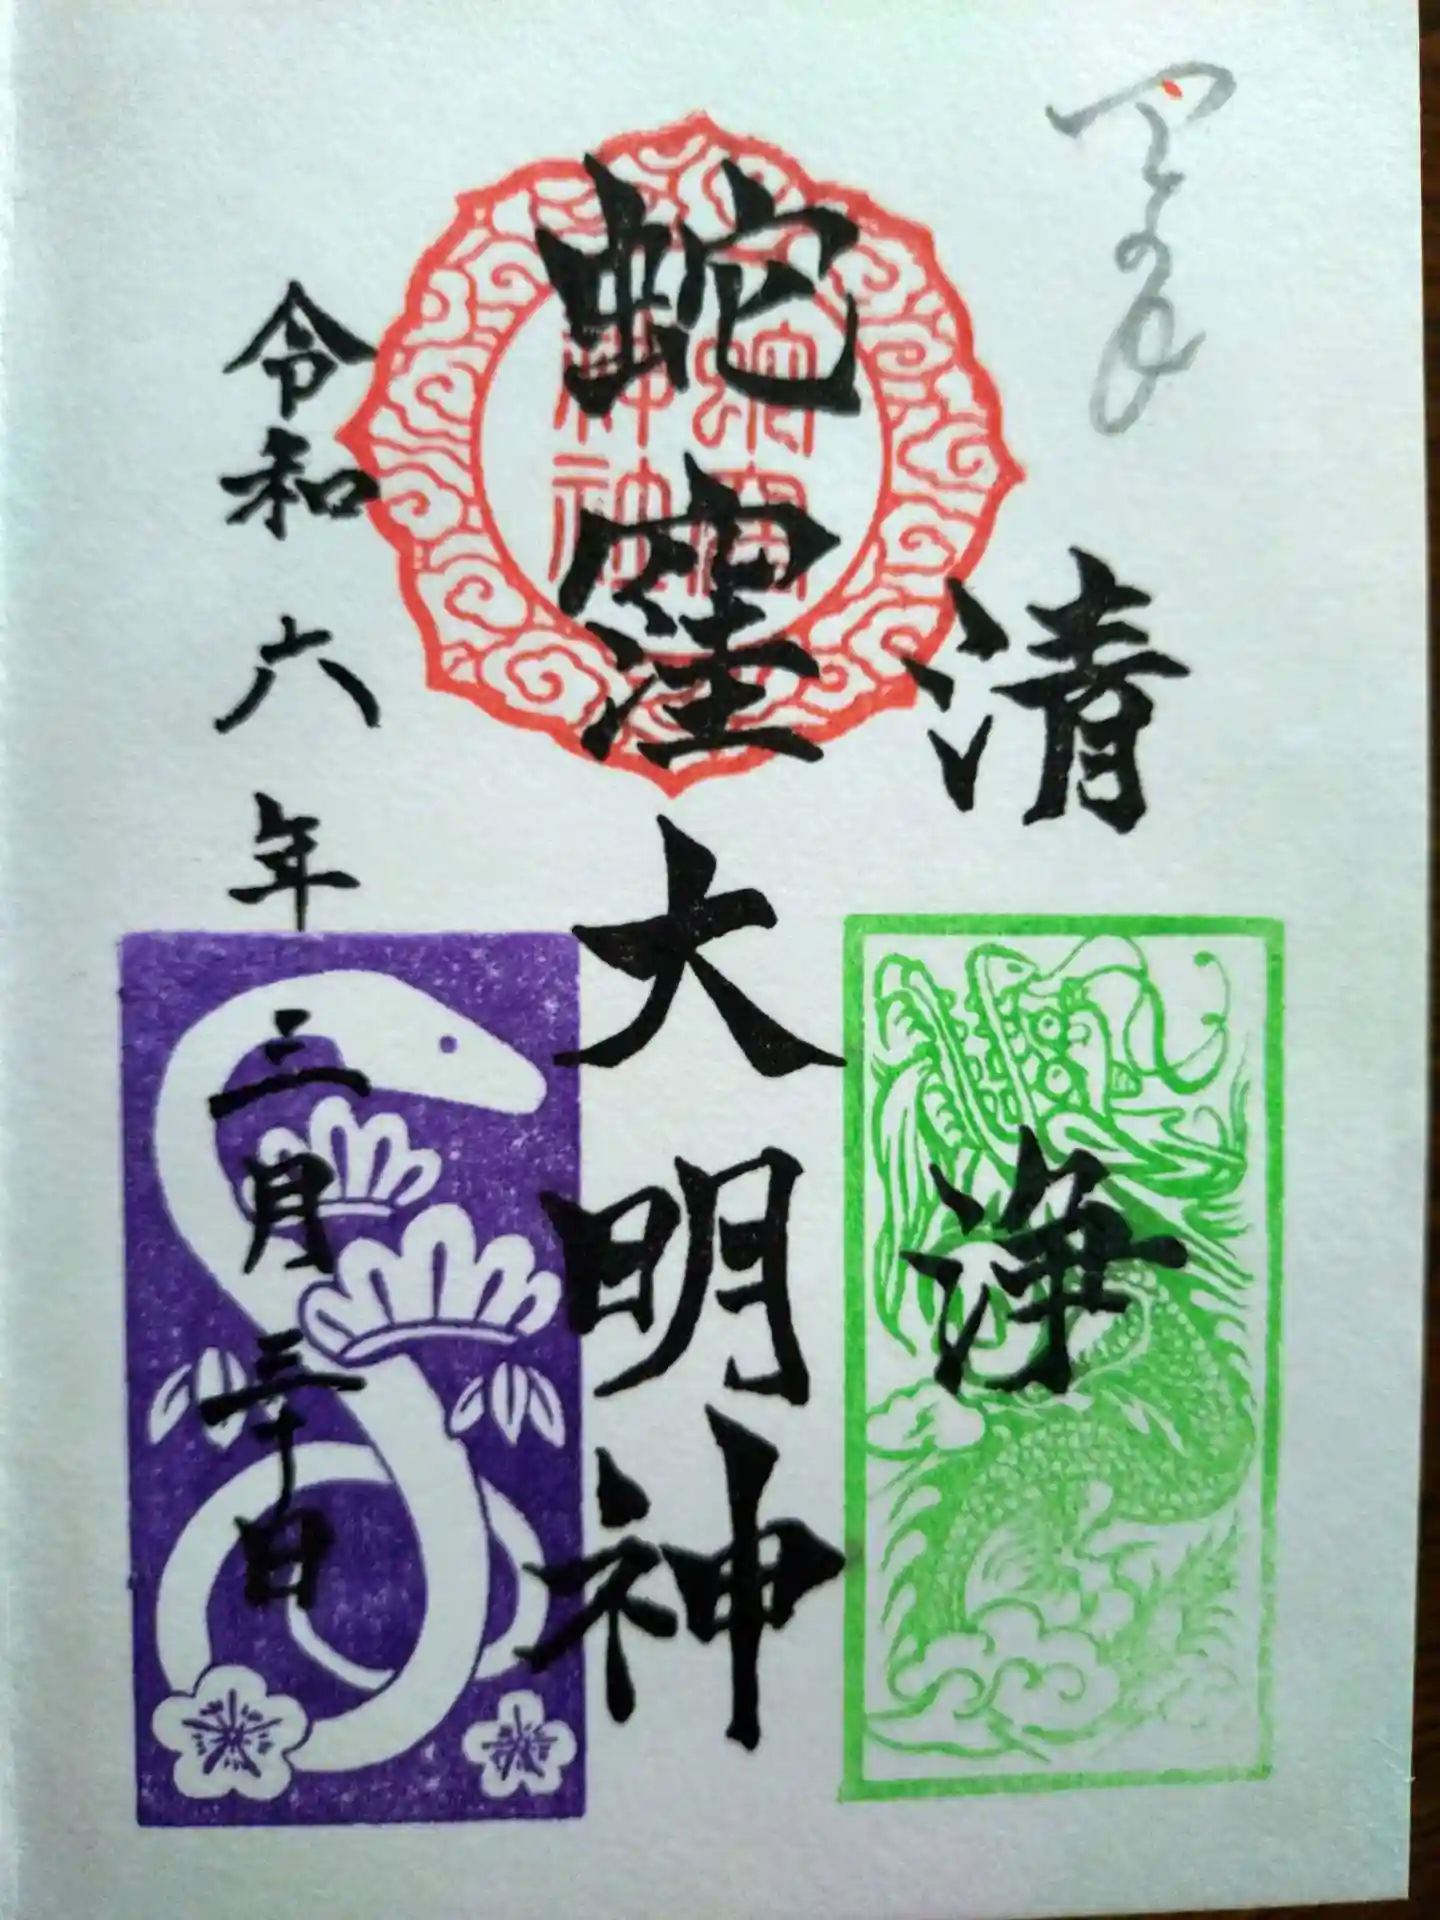 清浄
蛇窪大明神
蛇窪
神社
令和六年三月三十日